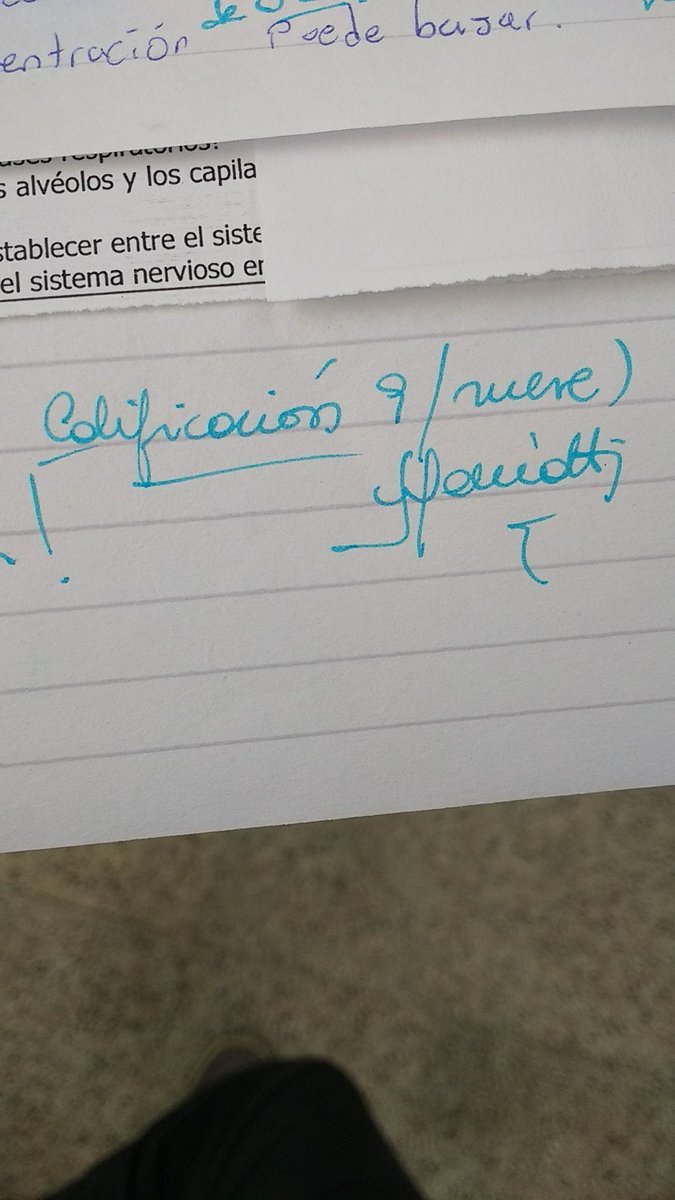 entración de Puede bajar.
s alvéolos y los capila
stablecer entre el siste
el sistema nervioso en
Calificación 9 (nueve)
!